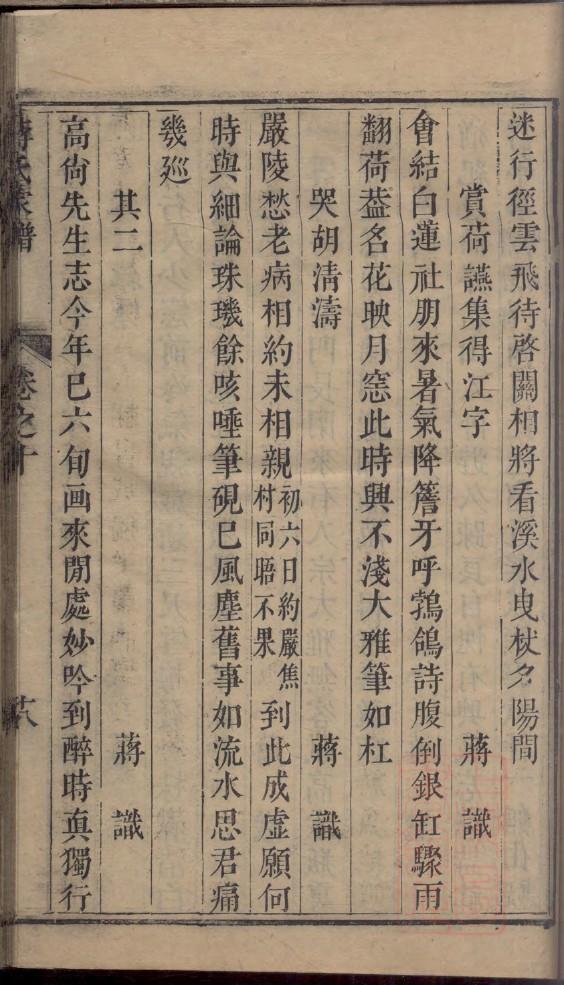 迷行徑雲飛待啓關相將看溪水曳杖夕陽間
賞荷讌集得江字 蔣識
會結白蓮社朋來暑氣降簷牙呼鵓鴿詩腹倒銀缸驟雨
翻荷葢名花映月窓此時興不淺大雅筆如杠
哭胡清濤 蔣識
嚴陵愁老病相約未相親初六日約嚴焦村同晤不果到此成虛願何
時與細論珠璣餘咳唾筆硯巳風塵舊事如流水思君痛
幾廵
其二 蔣識
高尙先生志今年巳六旬画來閒處妙吟到醉時眞獨行
蔣氏家譜 卷之十 十八